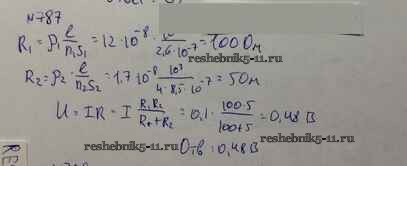 N787
R₁ = ρ₁ l/(n₁S₁) = 12·10⁻⁸ · /(2,6·10⁻⁷) = 100 Ом
R₂ = ρ₂ · l/(n₂S₂) = 1,7·10⁻⁸ 10³/(4·8,5·10⁻⁷) = 5 Ом
U = IR = I R₁R₂/(R₁+R₂) = 0,1 · 100·5/(100+5) = 0,48 В
reshebnik5-11.ru
reshebnik5-11.ru
Отв: 0,48 В